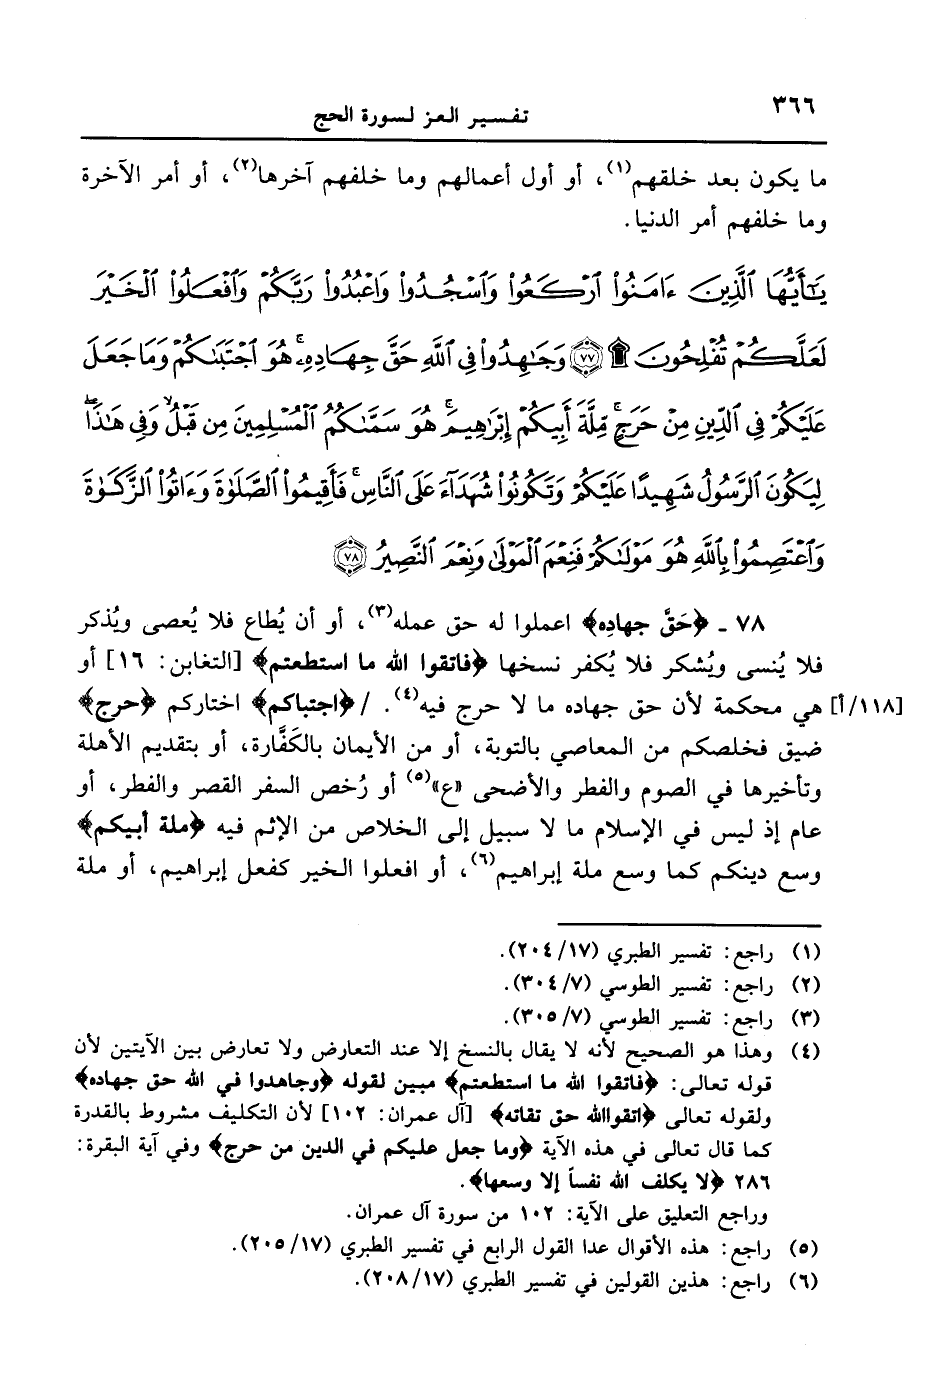 ٣٦٦
تفسير العز لسورة الحج
ما يكون بعد خلقهم(١)، أو أول أعمالهم وما خلفهم آخرها(٢)، أو أمر الآخرة
وما خلفهم أمر الدنيا.
يَٰٓأَيُّهَا ٱلَّذِينَ ءَامَنُوا۟ ٱرْكَعُوا۟ وَٱسْجُدُوا۟ وَٱعْبُدُوا۟ رَبَّكُمْ وَٱفْعَلُوا۟ ٱلْخَيْرَ
لَعَلَّكُمْ تُفْلِحُونَ ۩ ﴿٧٧﴾ وَجَٰهِدُوا۟ فِى ٱللَّهِ حَقَّ جِهَادِهِۦ ۚ هُوَ ٱجْتَبَىٰكُمْ وَمَا جَعَلَ
عَلَيْكُمْ فِى ٱلدِّينِ مِنْ حَرَجٍ ۚ مِّلَّةَ أَبِيكُمْ إِبْرَٰهِيمَ ۚ هُوَ سَمَّىٰكُمُ ٱلْمُسْلِمِينَ مِن قَبْلُ وَفِى هَٰذَا
لِيَكُونَ ٱلرَّسُولُ شَهِيدًا عَلَيْكُمْ وَتَكُونُوا۟ شُهَدَآءَ عَلَى ٱلنَّاسِ ۚ فَأَقِيمُوا۟ ٱلصَّلَوٰةَ وَءَاتُوا۟ ٱلزَّكَوٰةَ
وَٱعْتَصِمُوا۟ بِٱللَّهِ هُوَ مَوْلَىٰكُمْ فَنِعْمَ ٱلْمَوْلَىٰ وَنِعْمَ ٱلنَّصِيرُ ﴿٧٨﴾
٧٨ ـ ﴿حَقَّ جهادِه﴾ اعملوا له حق عمله(٣)، أو أن يُطاع فلا يُعصى ويُذكر
فلا يُنسى ويُشكر فلا يُكفر نسخها ﴿فاتقوا الله ما استطعتم﴾ [التغابن: ١٦] أو
[١١٨/أ] هي محكمة لأن حق جهاده ما لا حرج فيه(٤). / ﴿اجتباكم﴾ اختاركم ﴿حرج﴾
ضيق فخلصكم من المعاصي بالتوبة، أو من الأيمان بالكَفَّارة، أو بتقديم الأهلة
وتأخيرها في الصوم والفطر والأضحى «ع»(٥) أو رُخص السفر القصر والفطر، أو
عام إذ ليس في الإسلام ما لا سبيل إلى الخلاص من الإثم فيه ﴿ملة أبيكم﴾
وسع دينكم كما وسع ملة إبراهيم(٦)، أو افعلوا الخير كفعل إبراهيم، أو ملة
(١) راجع: تفسير الطبري (٢٠٤/١٧).
(٢) راجع: تفسير الطوسي (٣٠٤/٧).
(٣) راجع: تفسير الطوسي (٣٠٥/٧).
(٤) وهذا هو الصحيح لأنه لا يقال بالنسخ إلا عند التعارض ولا تعارض بين الآيتين لأن
قوله تعالى: ﴿فاتقوا الله ما استطعتم﴾ مبين لقوله ﴿وجاهدوا في الله حق جهاده﴾
ولقوله تعالى ﴿اتقواالله حق تقاته﴾ [آل عمران: ١٠٢] لأن التكليف مشروط بالقدرة
كما قال تعالى في هذه الآية ﴿وما جعل عليكم في الدين من حرج﴾ وفي آية البقرة:
٢٨٦ ﴿لا يكلف الله نفساً إلا وسعها﴾.
وراجع التعليق على الآية: ١٠٢ من سورة آل عمران.
(٥) راجع: هذه الأقوال عدا القول الرابع في تفسير الطبري (٢٠٥/١٧).
(٦) راجع: هذين القولين في تفسير الطبري (٢٠٨/١٧).